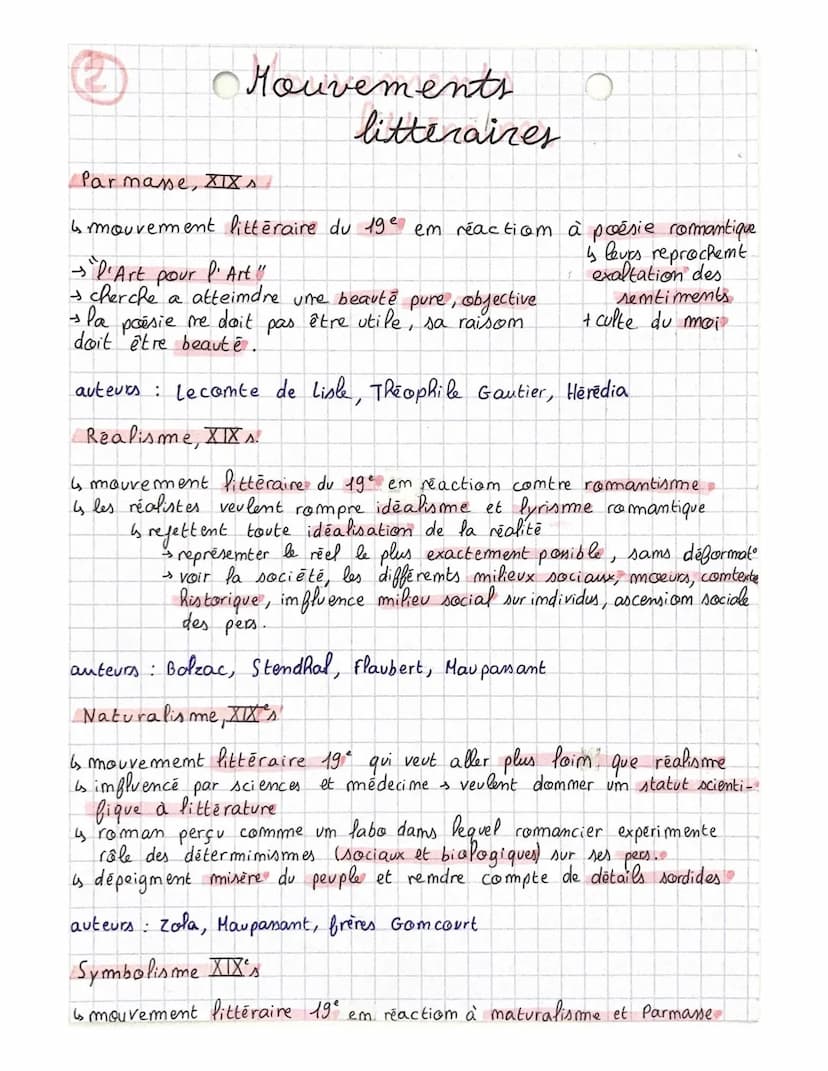 2
Mouvements
littéraires
Parnasse, XIX s
↳ mouvement littéraire du 19e en réaction à poésie romantique
↳ leurs reprochent
exaltation des
sentiments
+ culte du moi
→ "l'Art pour l'Art"
→ cherche a atteindre une beauté pure, objective
→ la poésie ne doit pas être utile, sa raison
doit être beauté.
auteurs : Lecomte de Lisle, Théophile Gautier, Hérédia
Réalisme, XIX s.
↳ mouvement littéraire du 19e en réaction contre romantisme
↳ les réalistes veulent rompre idéalisme et lyrisme romantique
↳ rejettent toute idéalisation de la réalité
→ représenter le réel le plus exactement possible, sans déformat°
→ voir la société, les différents milieux sociaux, moeurs, contexte
historique, influence milieu social sur individus, ascension sociale
des pers.
auteurs : Balzac, Stendhal, Flaubert, Maupassant
Naturalisme, XIXe s
↳ mouvement littéraire 19e qui veut aller plus loin que réalisme
↳ influencé par sciences et médecine → veulent donner un statut scienti-
fique à littérature
↳ roman perçu comme un labo dans lequel romancier experimente
rôle des déterminismes (sociaux et biologiques) sur ses pers.
↳ dépeignent misère du peuple et rendre compte de détails sordides
auteurs : Zola, Maupassant, frères Goncourt
Symbolisme XIXe s
↳ mouvement littéraire 19e en réaction à naturalisme et Parnasse